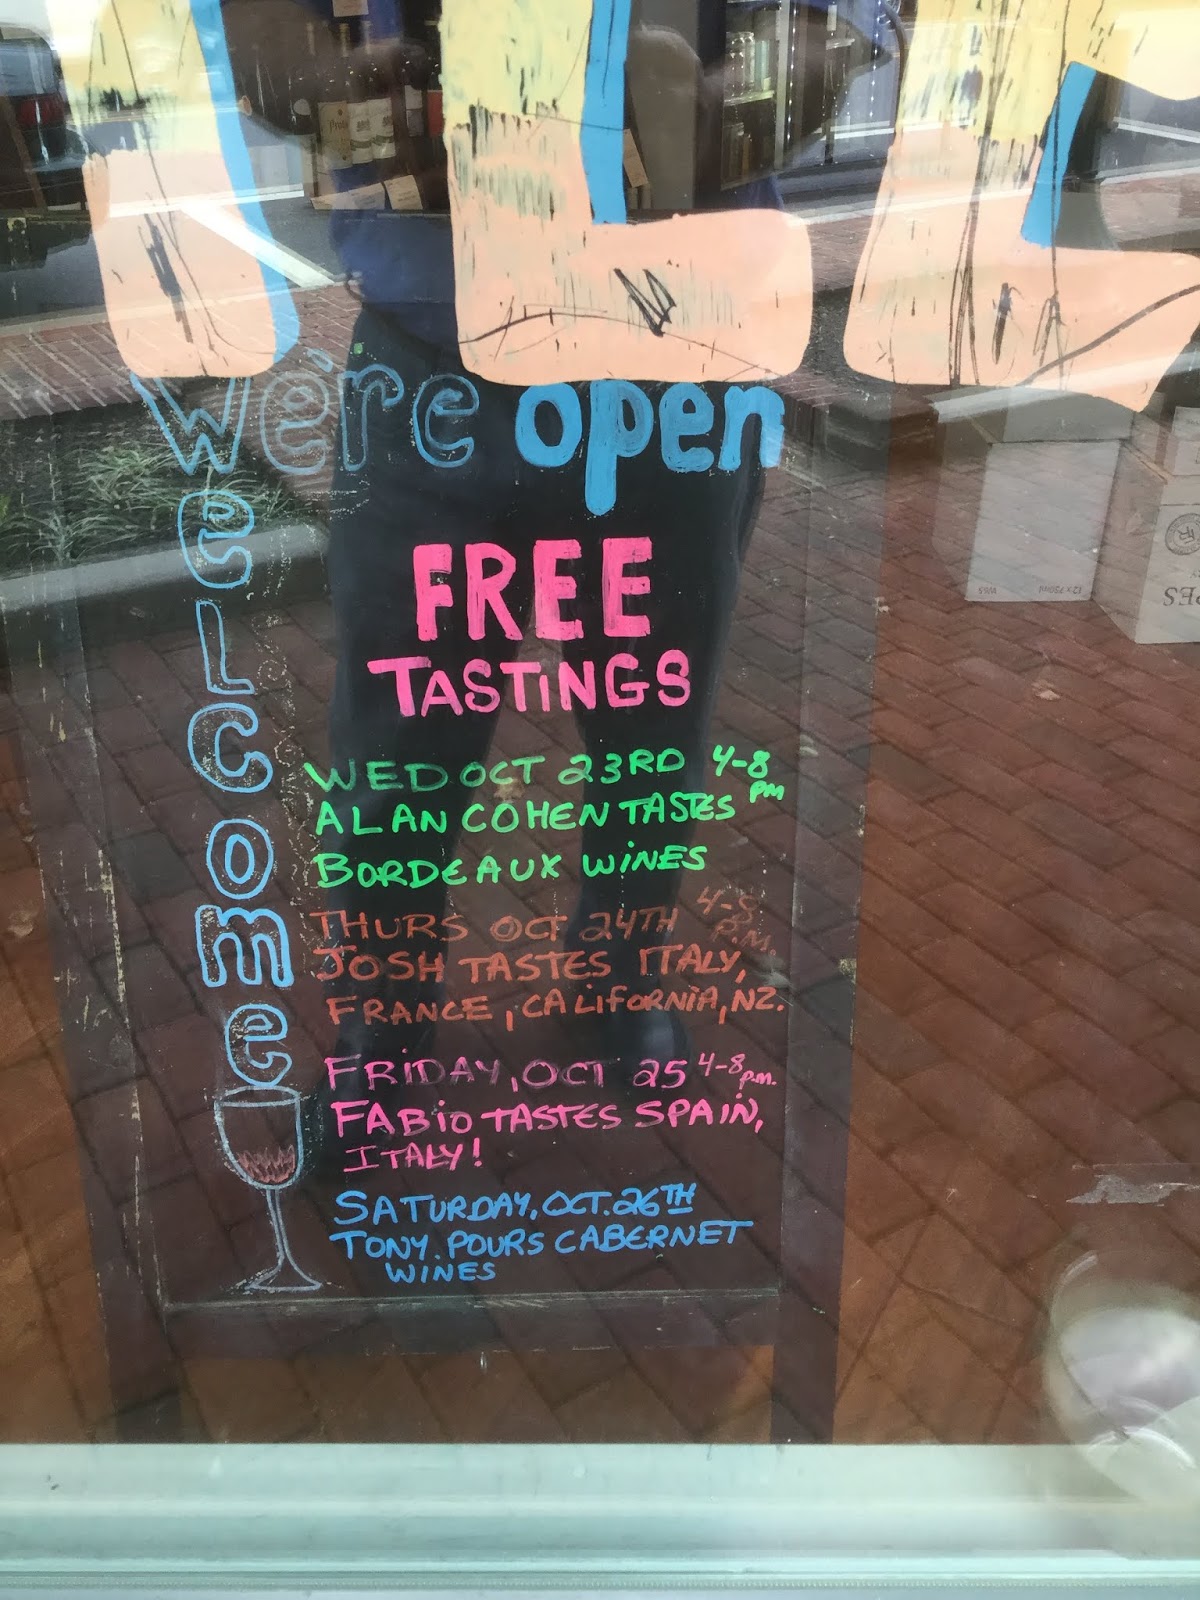 we're open
welcome
FREE
TASTINGS
WED OCT 23RD 4-8 PM
ALAN COHEN TASTES
BORDEAUX WINES
THURS OCT 24TH 4-8 P.M.
JOSH TASTES ITALY,
FRANCE, CALIFORNIA, NZ.
FRIDAY, OCT 25 4-8 P.M.
FABIO TASTES SPAIN,
ITALY!
SATURDAY, OCT. 26TH
TONY. POURS CABERNET
WINES